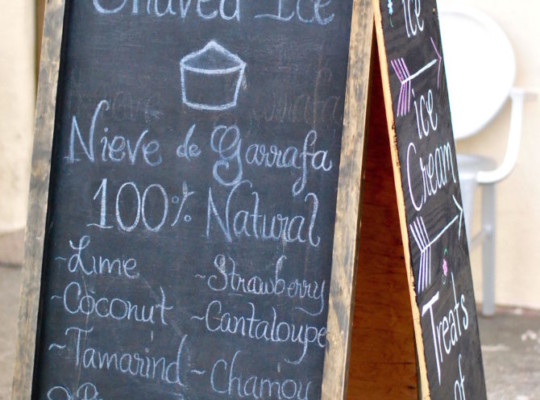 Shaved Ice
Nieve de Garrafa
100% Natural
~Lime
~Strawberry
~Coconut
~Cantaloupe
~Tamarind
~Chamoy
ice
ice
Cream
Treats